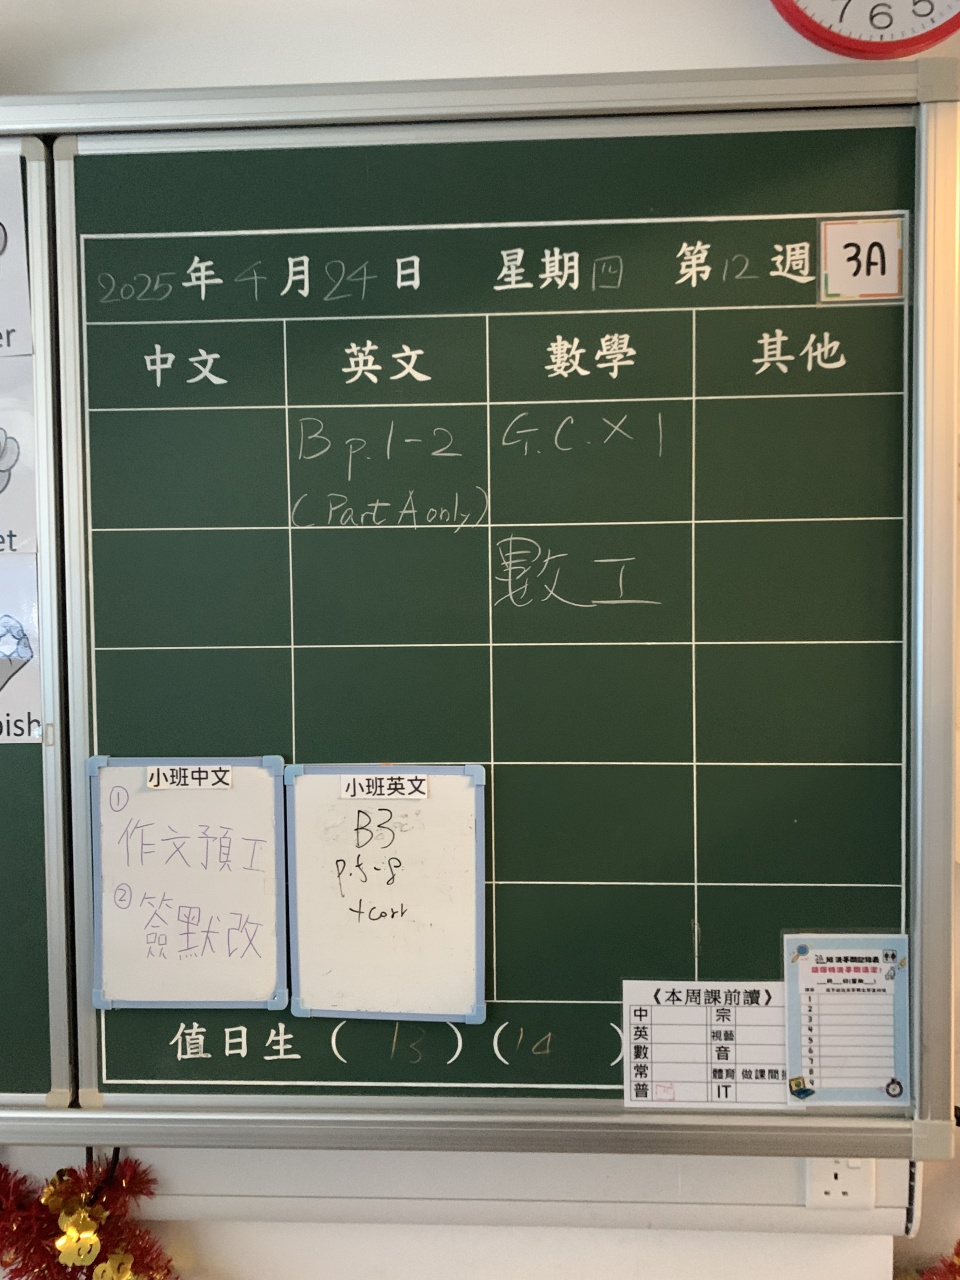 7 6 5
er
et
oish
2025年4月24日 星期四 第12週 3A
中文 英文 數學 其他
B p.1-2 G.C.×1
(Part A only)
數工
小班中文
①
作文預工
②
簽默改
小班英文
B3
p.5-8
+corr
值日生 ( 13 ) (14 )
《本周課前讀》
中 宗
英 視藝
數 音
常 體育 做課間
普 IT
1
2
3
4
5
6
7
8
9